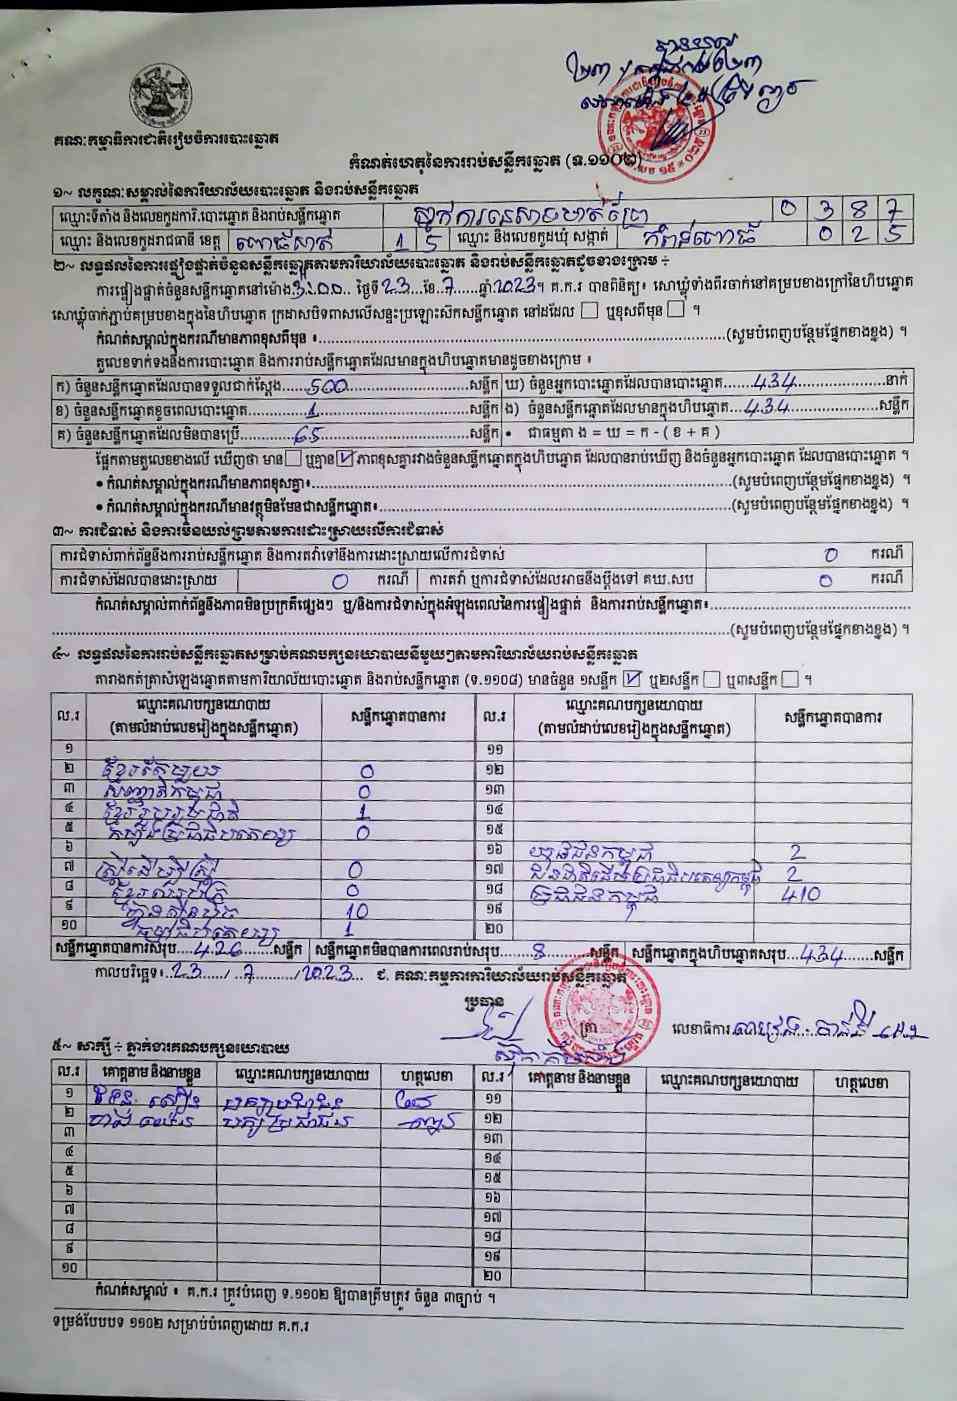 គណៈកម្មាធិការជាតិរៀបចំការបោះឆ្នោត
កំណត់ហេតុនៃការរាប់សន្លឹកឆ្នោត (ទ.១១០២)
១~ លក្ខណៈសម្គាល់នៃការិយាល័យបោះឆ្នោត និងរាប់សន្លឹកឆ្នោត
ឈ្មោះទីតាំង និងលេខកូដការិ.បោះឆ្នោត និងរាប់សន្លឹកឆ្នោត 0 3 8 7
ឈ្មោះ និងលេខកូដរាជធានី ខេត្ត ពោធិ៍សាត់ 1 5 ឈ្មោះ និងលេខកូដឃុំ សង្កាត់ កំពង់ពោធិ៍ 0 2 5
២~ លទ្ធផលនៃការផ្ទៀងផ្ទាត់ចំនួនសន្លឹកឆ្នោតតាមការិយាល័យបោះឆ្នោត និងរាប់សន្លឹកឆ្នោតដូចខាងក្រោម ៖
ការផ្ទៀងផ្ទាត់ចំនួនសន្លឹកឆ្នោតនៅម៉ោង 3:00 ថ្ងៃទី 23 ខែ 7 ឆ្នាំ 2023។ គ.ក.រ បានពិនិត្យ៖ សោឃ្លុំទាំងពីរចាក់នៅគម្របខាងក្រៅនៃហិបឆ្នោត
សោឃ្លុំចាក់ភ្ជាប់គម្របខាងក្នុងនៃហិបឆ្នោត ក្រដាសបិទពាសលើសន្ទះប្រឡោះស៊កសន្លឹកឆ្នោត នៅដដែល ☐ ឬខុសពីមុន ☐ ។
កំណត់សម្គាល់ក្នុងករណីមានភាពខុសពីមុន ៖ (សូមបំពេញបន្ថែមផ្នែកខាងខ្នង) ។
តួលេខទាក់ទងនឹងការបោះឆ្នោត និងការរាប់សន្លឹកឆ្នោតដែលមានក្នុងហិបឆ្នោតមានដូចខាងក្រោម ៖
ក) ចំនួនសន្លឹកឆ្នោតដែលបានទទួលជាក់ស្តែង 500 សន្លឹក ឃ) ចំនួនអ្នកបោះឆ្នោតដែលបានបោះឆ្នោត 434 នាក់
ខ) ចំនួនសន្លឹកឆ្នោតខូចពេលបោះឆ្នោត 1 សន្លឹក ង) ចំនួនសន្លឹកឆ្នោតដែលមានក្នុងហិបឆ្នោត 434 សន្លឹក
គ) ចំនួនសន្លឹកឆ្នោតដែលមិនបានប្រើ 65 សន្លឹក • ជាធម្មតា ង = ឃ = ក - ( ខ + គ )
ផ្អែកតាមតួលេខខាងលើ ឃើញថា មាន ☐ ឬគ្មាន ☑ ភាពខុសគ្នារវាងចំនួនសន្លឹកឆ្នោតក្នុងហិបឆ្នោត ដែលបានរាប់ឃើញ និងចំនួនអ្នកបោះឆ្នោត ដែលបានបោះឆ្នោត ។
• កំណត់សម្គាល់ក្នុងករណីមានភាពខុសគ្នា៖ (សូមបំពេញបន្ថែមផ្នែកខាងខ្នង) ។
• កំណត់សម្គាល់ក្នុងករណីមានវត្ថុមិនមែនជាសន្លឹកឆ្នោត៖ (សូមបំពេញបន្ថែមផ្នែកខាងខ្នង) ។
៣~ ការជំទាស់ និងការមិនយល់ព្រមតាមការដោះស្រាយលើការជំទាស់
ការជំទាស់ពាក់ព័ន្ធនឹងការរាប់សន្លឹកឆ្នោត និងការតវ៉ាទៅនឹងការដោះស្រាយលើការជំទាស់ 0 ករណី
ការជំទាស់ដែលបានដោះស្រាយ 0 ករណី ការតវ៉ា ឬការជំទាស់ដែលអាចនឹងប្តឹងទៅ គឃ.សប 0 ករណី
កំណត់សម្គាល់ពាក់ព័ន្ធនឹងភាពមិនប្រក្រតីផ្សេងៗ ឬ/និងការជំទាស់ក្នុងអំឡុងពេលនៃការផ្ទៀងផ្ទាត់ និងការរាប់សន្លឹកឆ្នោត៖
(សូមបំពេញបន្ថែមផ្នែកខាងខ្នង) ។
៤~ លទ្ធផលនៃការរាប់សន្លឹកឆ្នោតសម្រាប់គណបក្សនយោបាយនីមួយៗតាមការិយាល័យរាប់សន្លឹកឆ្នោត
តារាងកត់ត្រាសំឡេងឆ្នោតតាមការិយាល័យបោះឆ្នោត និងរាប់សន្លឹកឆ្នោត (ទ.១១០៨) មានចំនួន ១សន្លឹក ☑ ឬ២សន្លឹក ☐ ឬ៣សន្លឹក ☐ ។
ល.រ ឈ្មោះគណបក្សនយោបាយ (តាមលំដាប់លេខរៀងក្នុងសន្លឹកឆ្នោត) សន្លឹកឆ្នោតបានការ ល.រ ឈ្មោះគណបក្សនយោបាយ (តាមលំដាប់លេខរៀងក្នុងសន្លឹកឆ្នោត) សន្លឹកឆ្នោតបានការ
១ ១១
២ ខ្មែរតែមួយ 0 ១២
៣ សញ្ជាតិកម្ពុជា 0 ១៣
៤ ខ្មែររួបរួមជាតិ 1 ១៤
៥ កម្លាំងប្រជាធិបតេយ្យ 0 ១៥
៦ ១៦ យុវជនកម្ពុជា 2
៧ ស្ត្រីដើម្បីស្ត្រី 0 ១៧ 2
៨ 0 ១៨ ប្រជាជនកម្ពុជា 410
៩ ហ៊្វុនស៊ិនប៉ិច 10 ១៩
១០ ធម្មាធិបតេយ្យ 1 ២០
សន្លឹកឆ្នោតបានការសរុប 426 សន្លឹក សន្លឹកឆ្នោតមិនបានការពេលរាប់សរុប 8 សន្លឹក សន្លឹកឆ្នោតក្នុងហិបឆ្នោតសរុប 434 សន្លឹក
កាលបរិច្ឆេទ៖ 23 / 7 / 2023 ជ. គណៈកម្មការការិយាល័យរាប់សន្លឹកឆ្នោត
ប្រធាន
ត្រា លេខាធិការ
៥~ សាក្សី ÷ ភ្នាក់ងារគណបក្សនយោបាយ
ល.រ គោត្តនាម និងនាមខ្លួន ឈ្មោះគណបក្សនយោបាយ ហត្ថលេខា ល.រ គោត្តនាម និងនាមខ្លួន ឈ្មោះគណបក្សនយោបាយ ហត្ថលេខា
១ ១១
២ ១២
៣ ១៣
៤ ១៤
៥ ១៥
៦ ១៦
៧ ១៧
៨ ១៨
៩ ១៩
១០ ២០
កំណត់សម្គាល់ ៖ គ.ក.រ ត្រូវបំពេញ ទ.១១០២ ឱ្យបានត្រឹមត្រូវ ចំនួន ៣ច្បាប់ ។
ទម្រង់បែបបទ ១១០២ សម្រាប់បំពេញដោយ គ.ក.រ